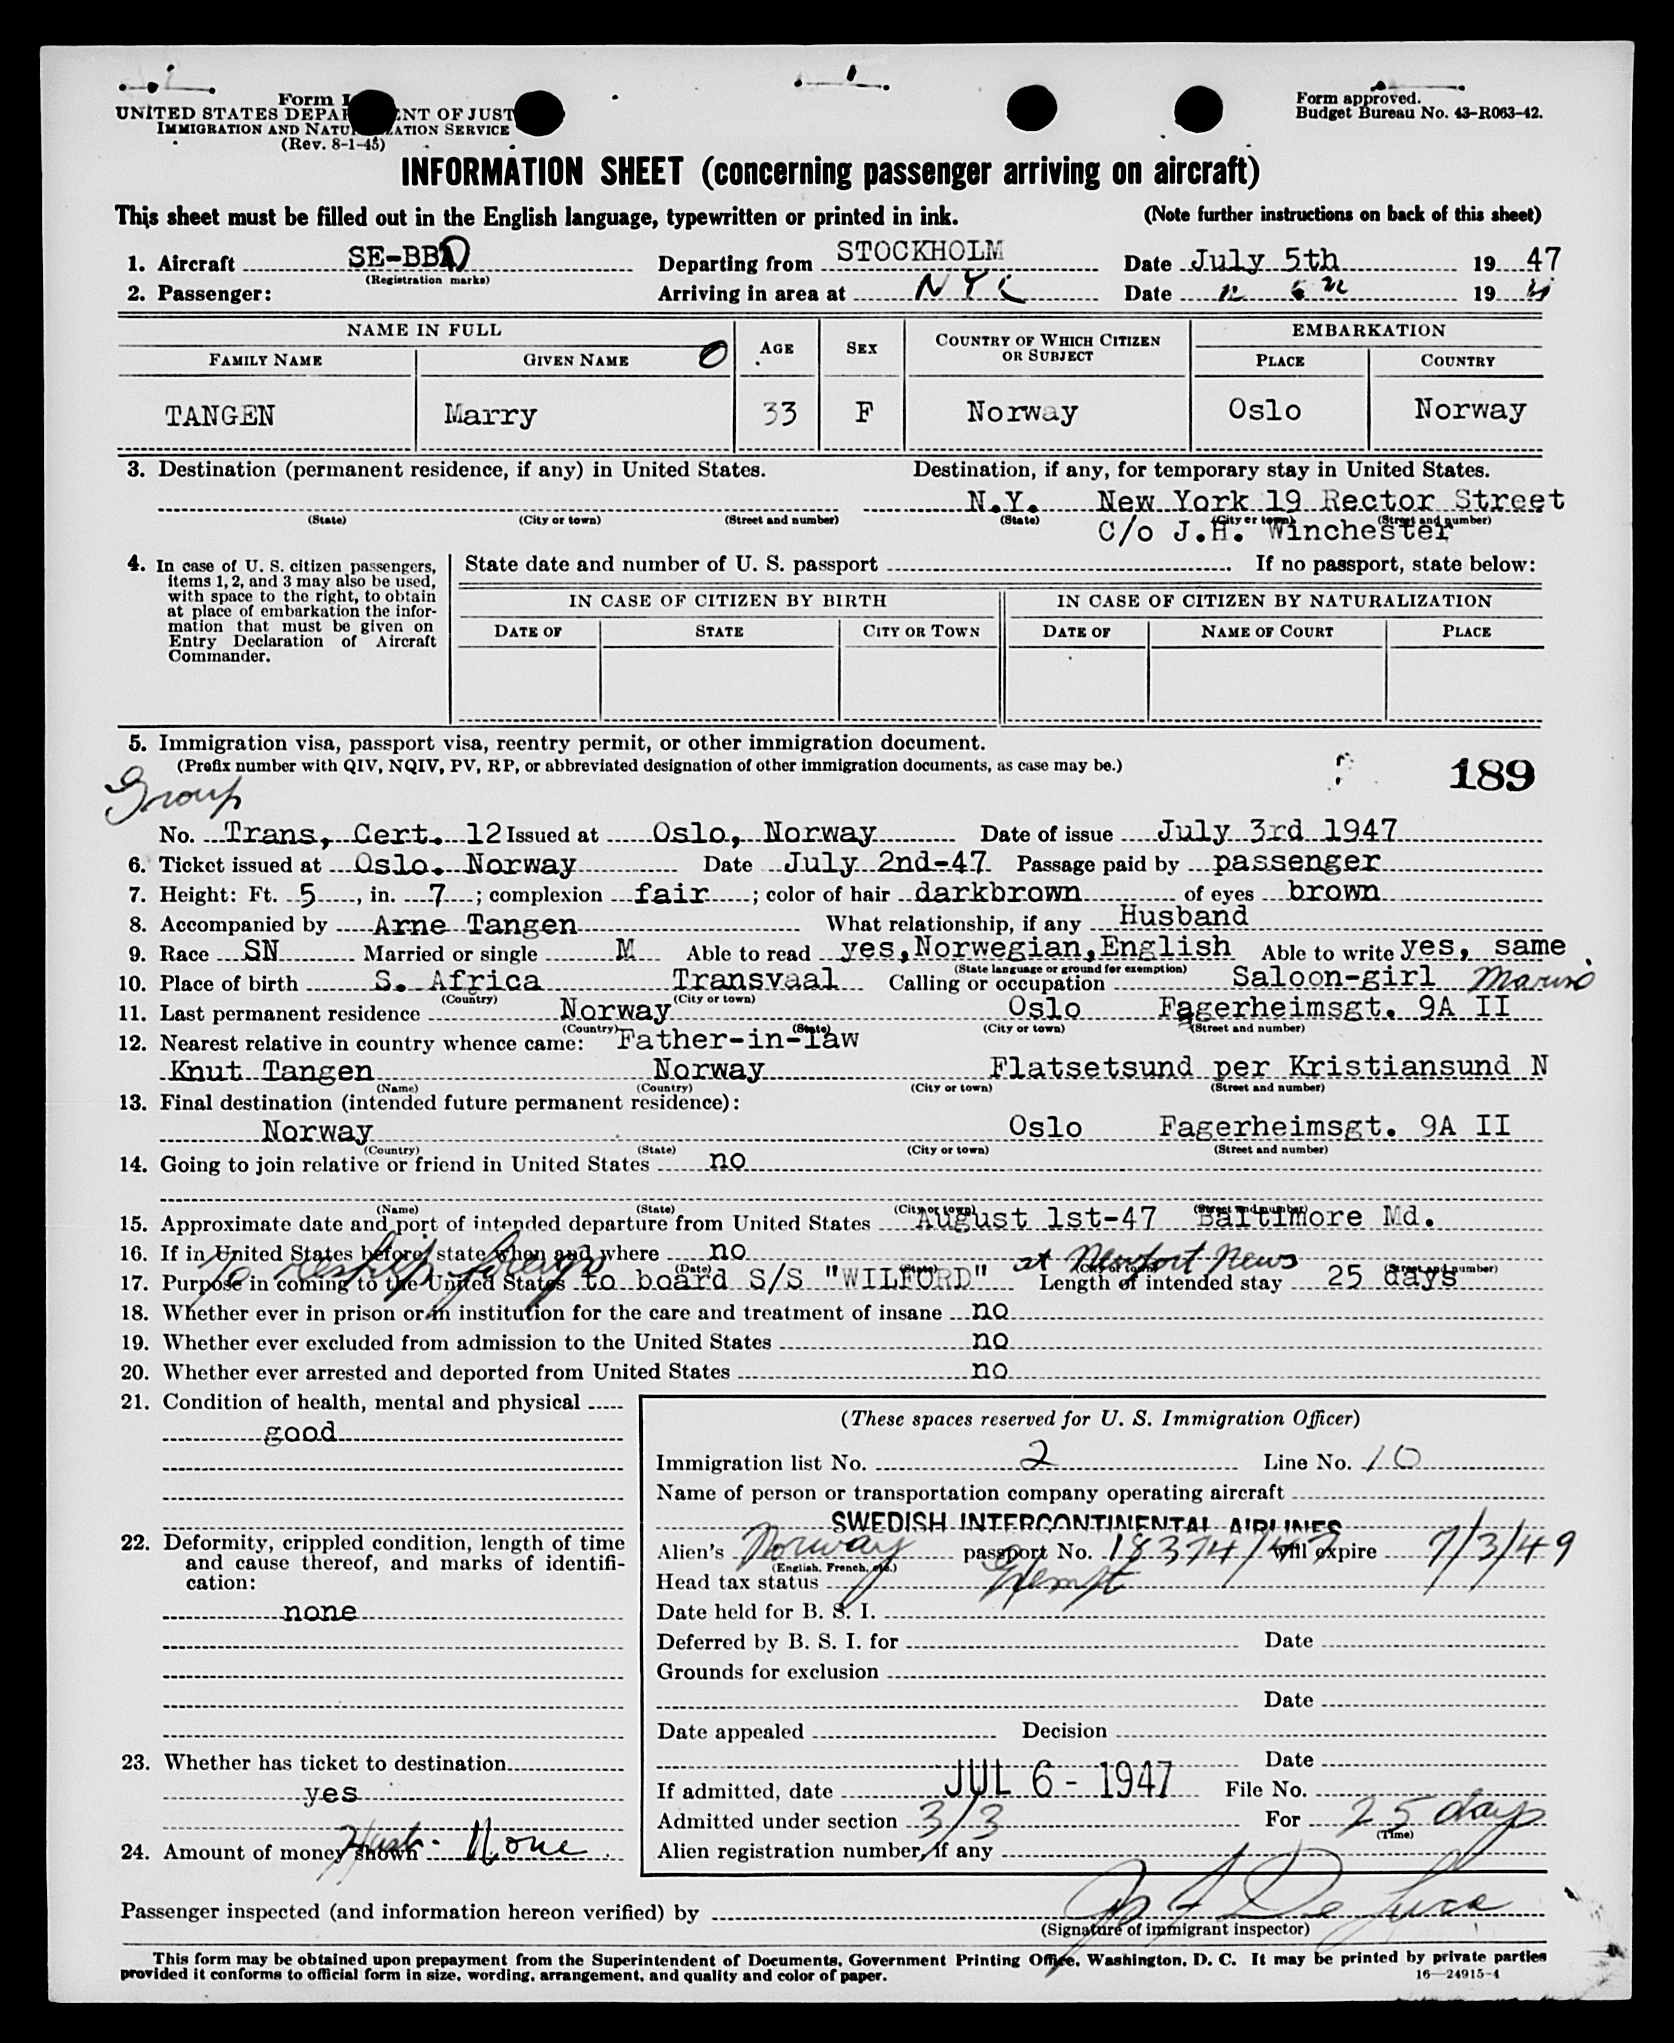 Form I
UNITED STATES DEPA NT OF JUST
IMMIGRATION AND NATU ATION SERVICE
(Rev. 8-1-45)
Form approved.
Budget Bureau No. 43-R063-42.
INFORMATION SHEET (concerning passenger arriving on aircraft)
This sheet must be filled out in the English language, typewritten or printed in ink. (Note further instructions on back of this sheet)
1. Aircraft SE-BBD Departing from STOCKHOLM Date July 5th 1947
(Registration marks)
2. Passenger: Arriving in area at NYC Date 19
NAME IN FULL AGE SEX COUNTRY OF WHICH CITIZEN OR SUBJECT EMBARKATION
FAMILY NAME GIVEN NAME PLACE COUNTRY
TANGEN Marry 33 F Norway Oslo Norway
3. Destination (permanent residence, if any) in United States. Destination, if any, for temporary stay in United States.
N.Y. New York 19 Rector Street
(State) (City or town) (Street and number) (State) (City or town) (Street and number)
C/o J.H. Winchester
4. In case of U. S. citizen passengers, items 1, 2, and 3 may also be used, with space to the right, to obtain at place of embarkation the information that must be given on Entry Declaration of Aircraft Commander.
State date and number of U. S. passport If no passport, state below:
IN CASE OF CITIZEN BY BIRTH IN CASE OF CITIZEN BY NATURALIZATION
DATE OF STATE CITY OR TOWN DATE OF NAME OF COURT PLACE
5. Immigration visa, passport visa, reentry permit, or other immigration document.
(Prefix number with QIV, NQIV, PV, RP, or abbreviated designation of other immigration documents, as case may be.)
189
Group
No. Trans, Cert. 12 Issued at Oslo, Norway Date of issue July 3rd 1947
6. Ticket issued at Oslo. Norway Date July 2nd-47 Passage paid by passenger
7. Height: Ft. 5, in. 7; complexion fair; color of hair darkbrown of eyes brown
8. Accompanied by Arne Tangen What relationship, if any Husband
9. Race SN Married or single M Able to read yes, Norwegian, English Able to write yes, same
(State language or ground for exemption)
10. Place of birth S. Africa Transvaal Calling or occupation Saloon-girl
(Country) (City or town)
11. Last permanent residence Norway Oslo Fagerheimsgt. 9A II
(Country) (State) (City or town) (Street and number)
12. Nearest relative in country whence came: Father-in-law
Knut Tangen Norway Flatsetsund per Kristiansund N
(Name) (Country) (City or town) (Street and number)
13. Final destination (intended future permanent residence):
Norway Oslo Fagerheimsgt. 9A II
(Country) (State) (City or town) (Street and number)
14. Going to join relative or friend in United States no
(Name) (State) (City or town) (Street and number)
15. Approximate date and port of intended departure from United States August 1st-47 Baltimore Md.
16. If in United States before, state when and where no
(Date) (State) (City or town) (Street and number)
To reship foreign at Newport News
17. Purpose in coming to the United States to board S/S "WILFORD" Length of intended stay 25 days
18. Whether ever in prison or in institution for the care and treatment of insane no
19. Whether ever excluded from admission to the United States no
20. Whether ever arrested and deported from United States no
21. Condition of health, mental and physical
good
22. Deformity, crippled condition, length of time and cause thereof, and marks of identification:
none
23. Whether has ticket to destination
yes
24. Amount of money shown Husb- None
(These spaces reserved for U. S. Immigration Officer)
Immigration list No. 2 Line No. 10
Name of person or transportation company operating aircraft
SWEDISH INTERCONTINENTAL AIRLINES
Alien's Norway passport No. 18374/47 will expire 7/3/49
(English, French, etc.)
Head tax status Exempt
Date held for B. S. I.
Deferred by B. S. I. for Date
Grounds for exclusion
Date
Date appealed Decision
Date
If admitted, date JUL 6 - 1947 File No.
Admitted under section 3/3 For 25 days
(Time)
Alien registration number, if any
Passenger inspected (and information hereon verified) by
(Signature of immigrant inspector)
This form may be obtained upon prepayment from the Superintendent of Documents, Government Printing Office, Washington, D. C. It may be printed by private parties
provided it conforms to official form in size, wording, arrangement, and quality and color of paper.
16—24915-4